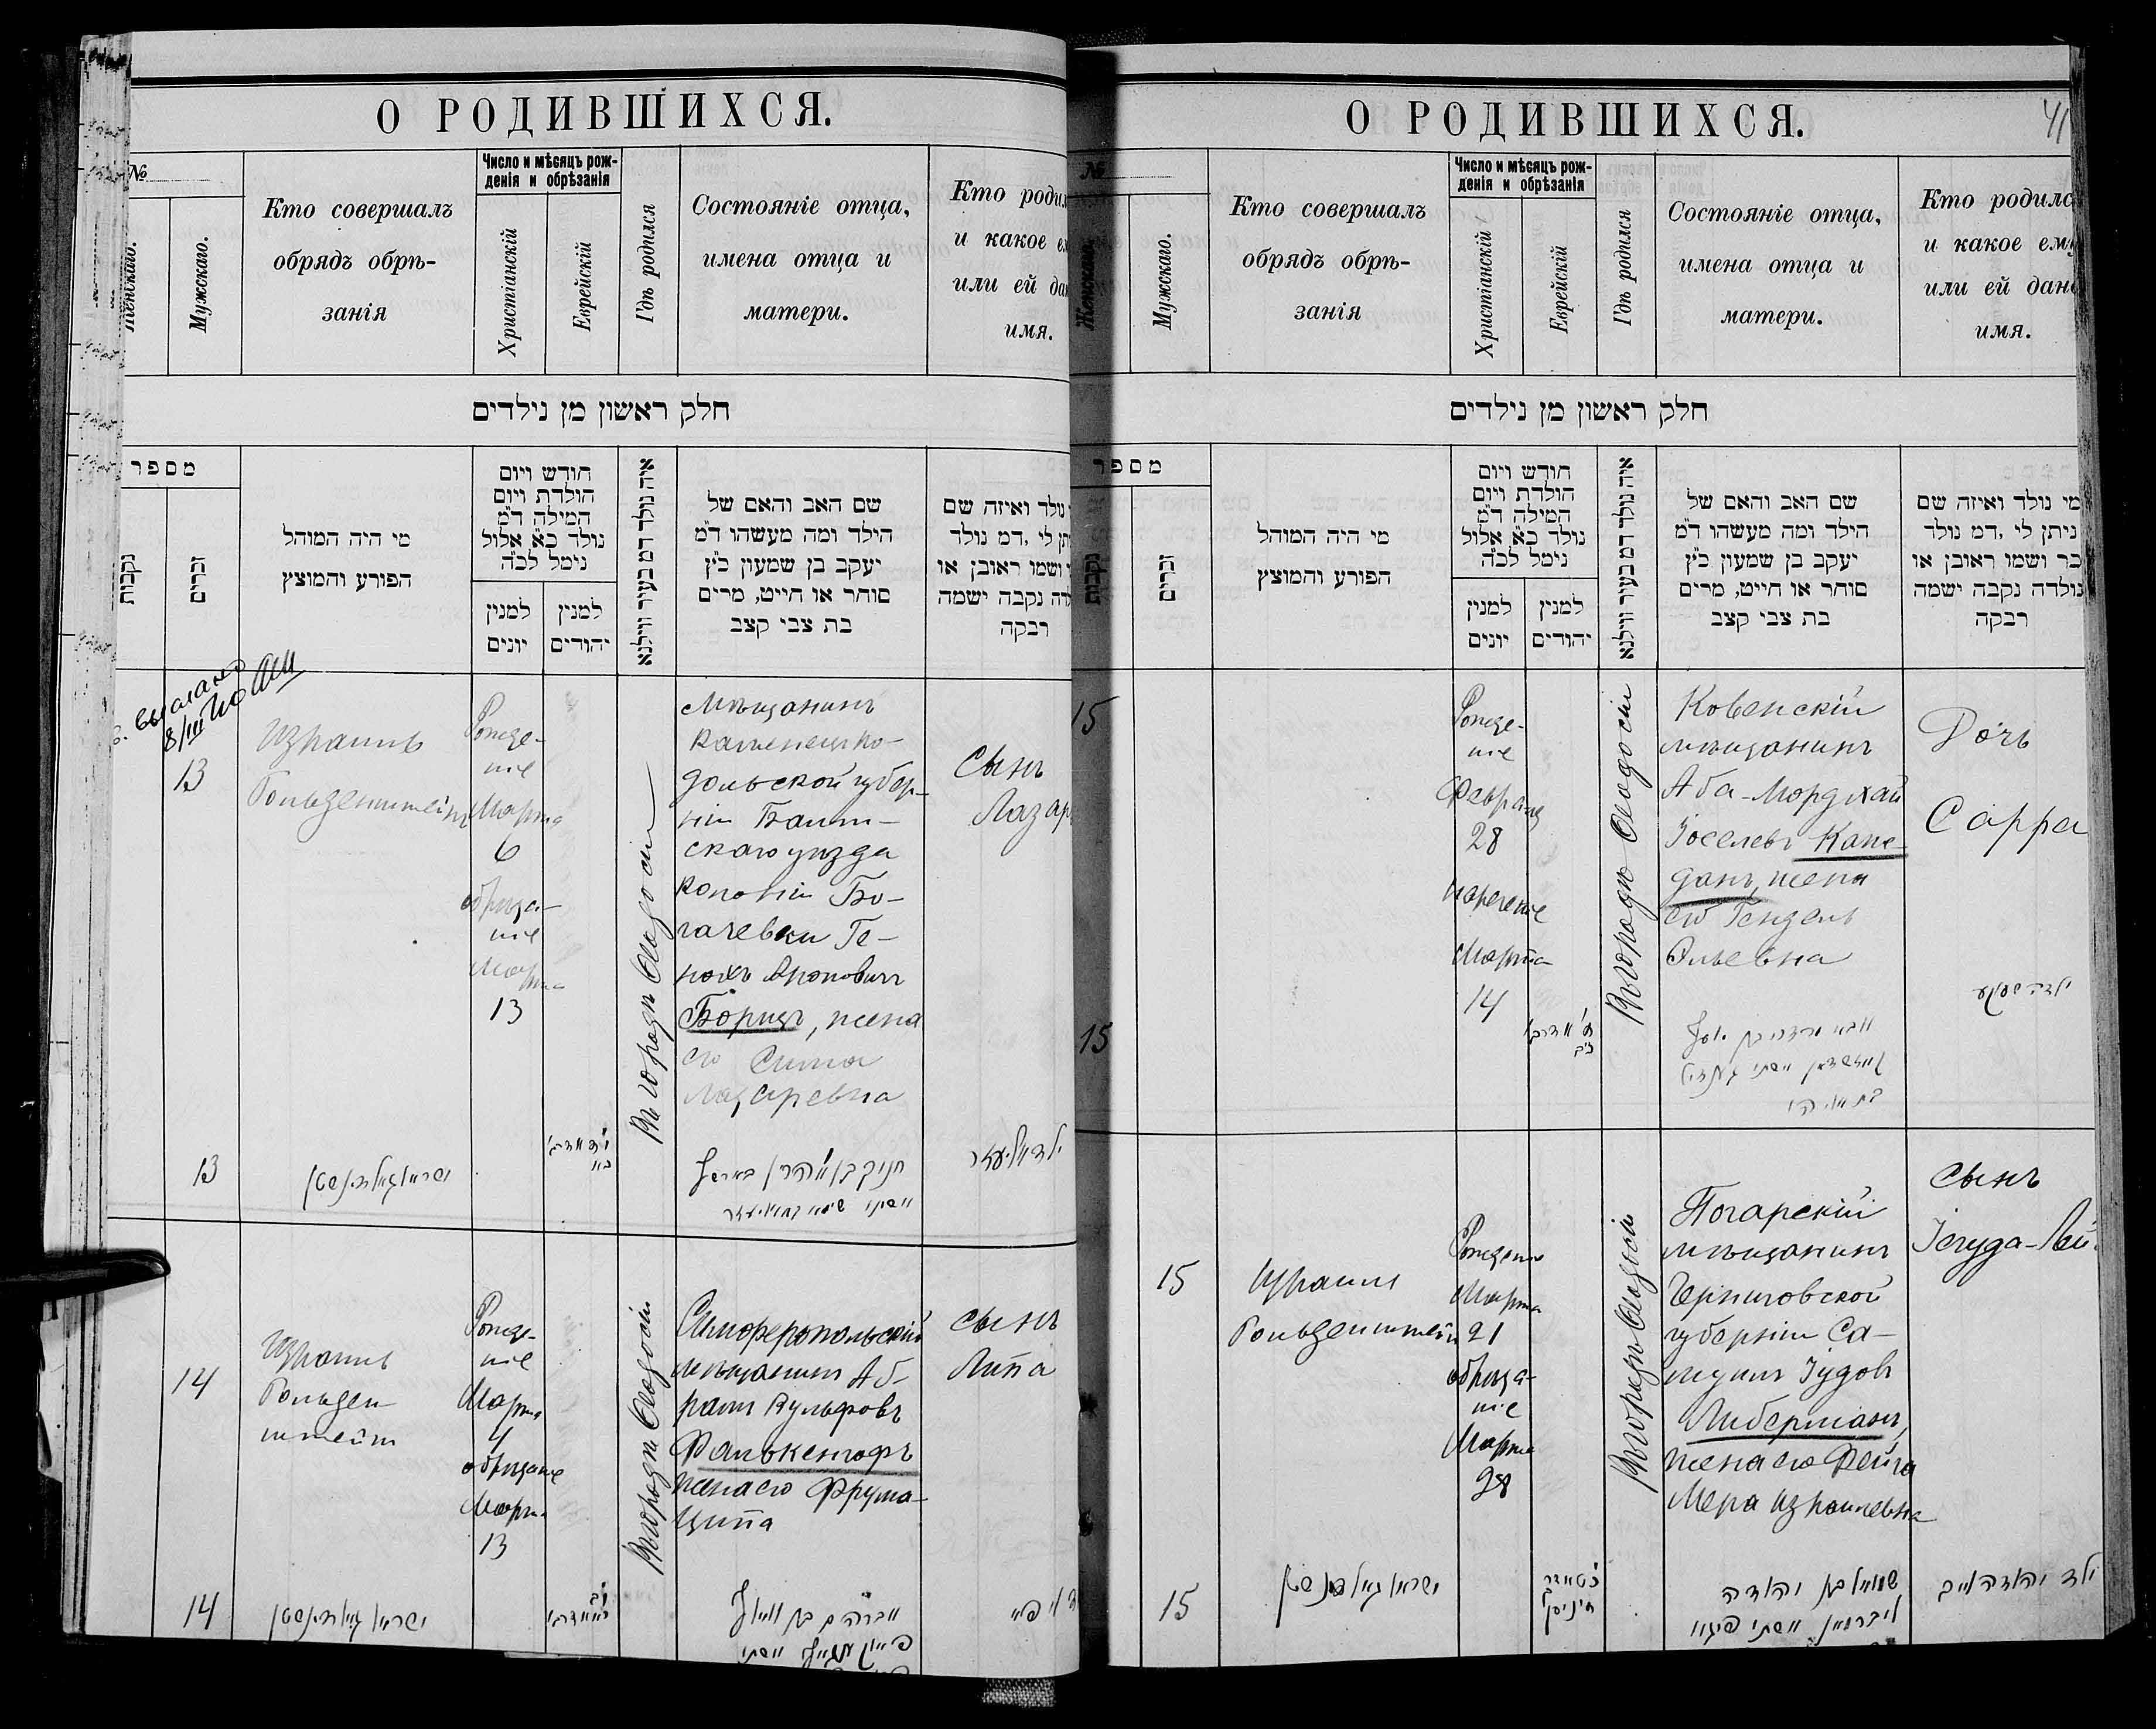 О РОДИВШИХСЯ.
№
Женскаго.
Мужскаго.
Кто совершалъ
обрядъ обрѣ-
занія
Число и мѣсяцъ рож-
денія и обрѣзанія
Христіанскій
Еврейскій
Гдѣ родился
Состояніе отца,
имена отца и
матери.
Кто родил
и какое е
или ей да
имя.
חלק ראשון מן נילדים
מספר
נקבות
זכרים
מי היה המוהל
הפורע והמוצץ
חודש ויום
הולדת ויום
המילה ד״מ
נולד כ״א אלול
נימל לכ״ה
למנין
יונים
למנין
יהודים
איה נולד דמ בעיר ווילנא
שם האב והאם של
הילד ומה מעשהו ד״מ
יעקב בן שמעון כ״ץ
סוחר או חייט, מרים
בת צבי קצב
נולד ואיזה שם
תן לי ,דמ נולד
ושמו ראובן או
דה נקבה ישמה
רבקה
8/III
13
Израиль
Гольденштейнъ
Рожде-
ніе
Марта
6
обрѣза-
ніе
Марта
13
Въ городѣ Ѳеодосіи
Мѣщанинъ
Каменецпо-
дольской губер-
ніи Балт-
скаго уѣзда
колоніи Бо-
гачевки Ге-
нохъ Ароновичъ
Борицъ, жена
его Сима
Лазаревна
Сынъ
Лазарь
13
ישראל גאלדענשטיין
חנוך בן אהרן באריץ
ילד אליעזר
14
Израиль
Гольден-
штейнъ
Рожде-
ніе
Марта
4
обрѣзаніе
Марта
13
Въ городѣ Ѳеодосіи
Симферопольскій
мѣщанинъ Аб-
рамъ Вульфовъ
Фалькенгофъ
жена его Фрума-
Ципа
сынъ
Липа
14
ישראל גאלדענשטיין
О РОДИВШИХСЯ.
41
№
Женскаго.
Мужскаго.
Кто совершалъ
обрядъ обрѣ-
занія
Число и мѣсяцъ рож-
денія и обрѣзанія
Христіанскій
Еврейскій
Гдѣ родился
Состояніе отца,
имена отца и
матери.
Кто родилс
и какое ему
или ей дано
имя.
חלק ראשון מן נילדים
מספר
נקבות
זכרים
מי היה המוהל
הפורע והמוצץ
חודש ויום
הולדת ויום
המילה ד״מ
נולד כ״א אלול
נימל לכ״ה
למנין
יונים
למנין
יהודים
איה נולד דמ בעיר ווילנא
שם האב והאם של
הילד ומה מעשהו ד״מ
יעקב בן שמעון כ״ץ
סוחר או חייט, מרים
בת צבי קצב
מי נולד ואיזה שם
ניתן לי ,דמ נולד
בר ושמו ראובן או
נולדה נקבה ישמה
רבקה
15
Рожде-
ніе
Февраля
28
нареченіе
Марта
14
Въ городѣ Ѳеодосіи
Ковенскій
мѣщанинъ
Аба-Мордхай
Іоселевъ Капе-
данъ, жена
его Гендель
Эльевна
Дочь
Сарра
15
15
Израиль
Гольденштейнъ
Рожденіе
Марта
21
обрѣза-
ніе
Марта
28
Въ городѣ Ѳеодосіи
Погарскій
мѣщанинъ
Черниговской
губерніи Са-
муилъ Іудовъ
Либерманъ,
жена его Фейга
Мера Израилевна
сынъ
Іегуда-Лей
15
ישראל גאלדענשטיין
שמואל בן יהודה
ליבערמאן
ילד יהודה לייב